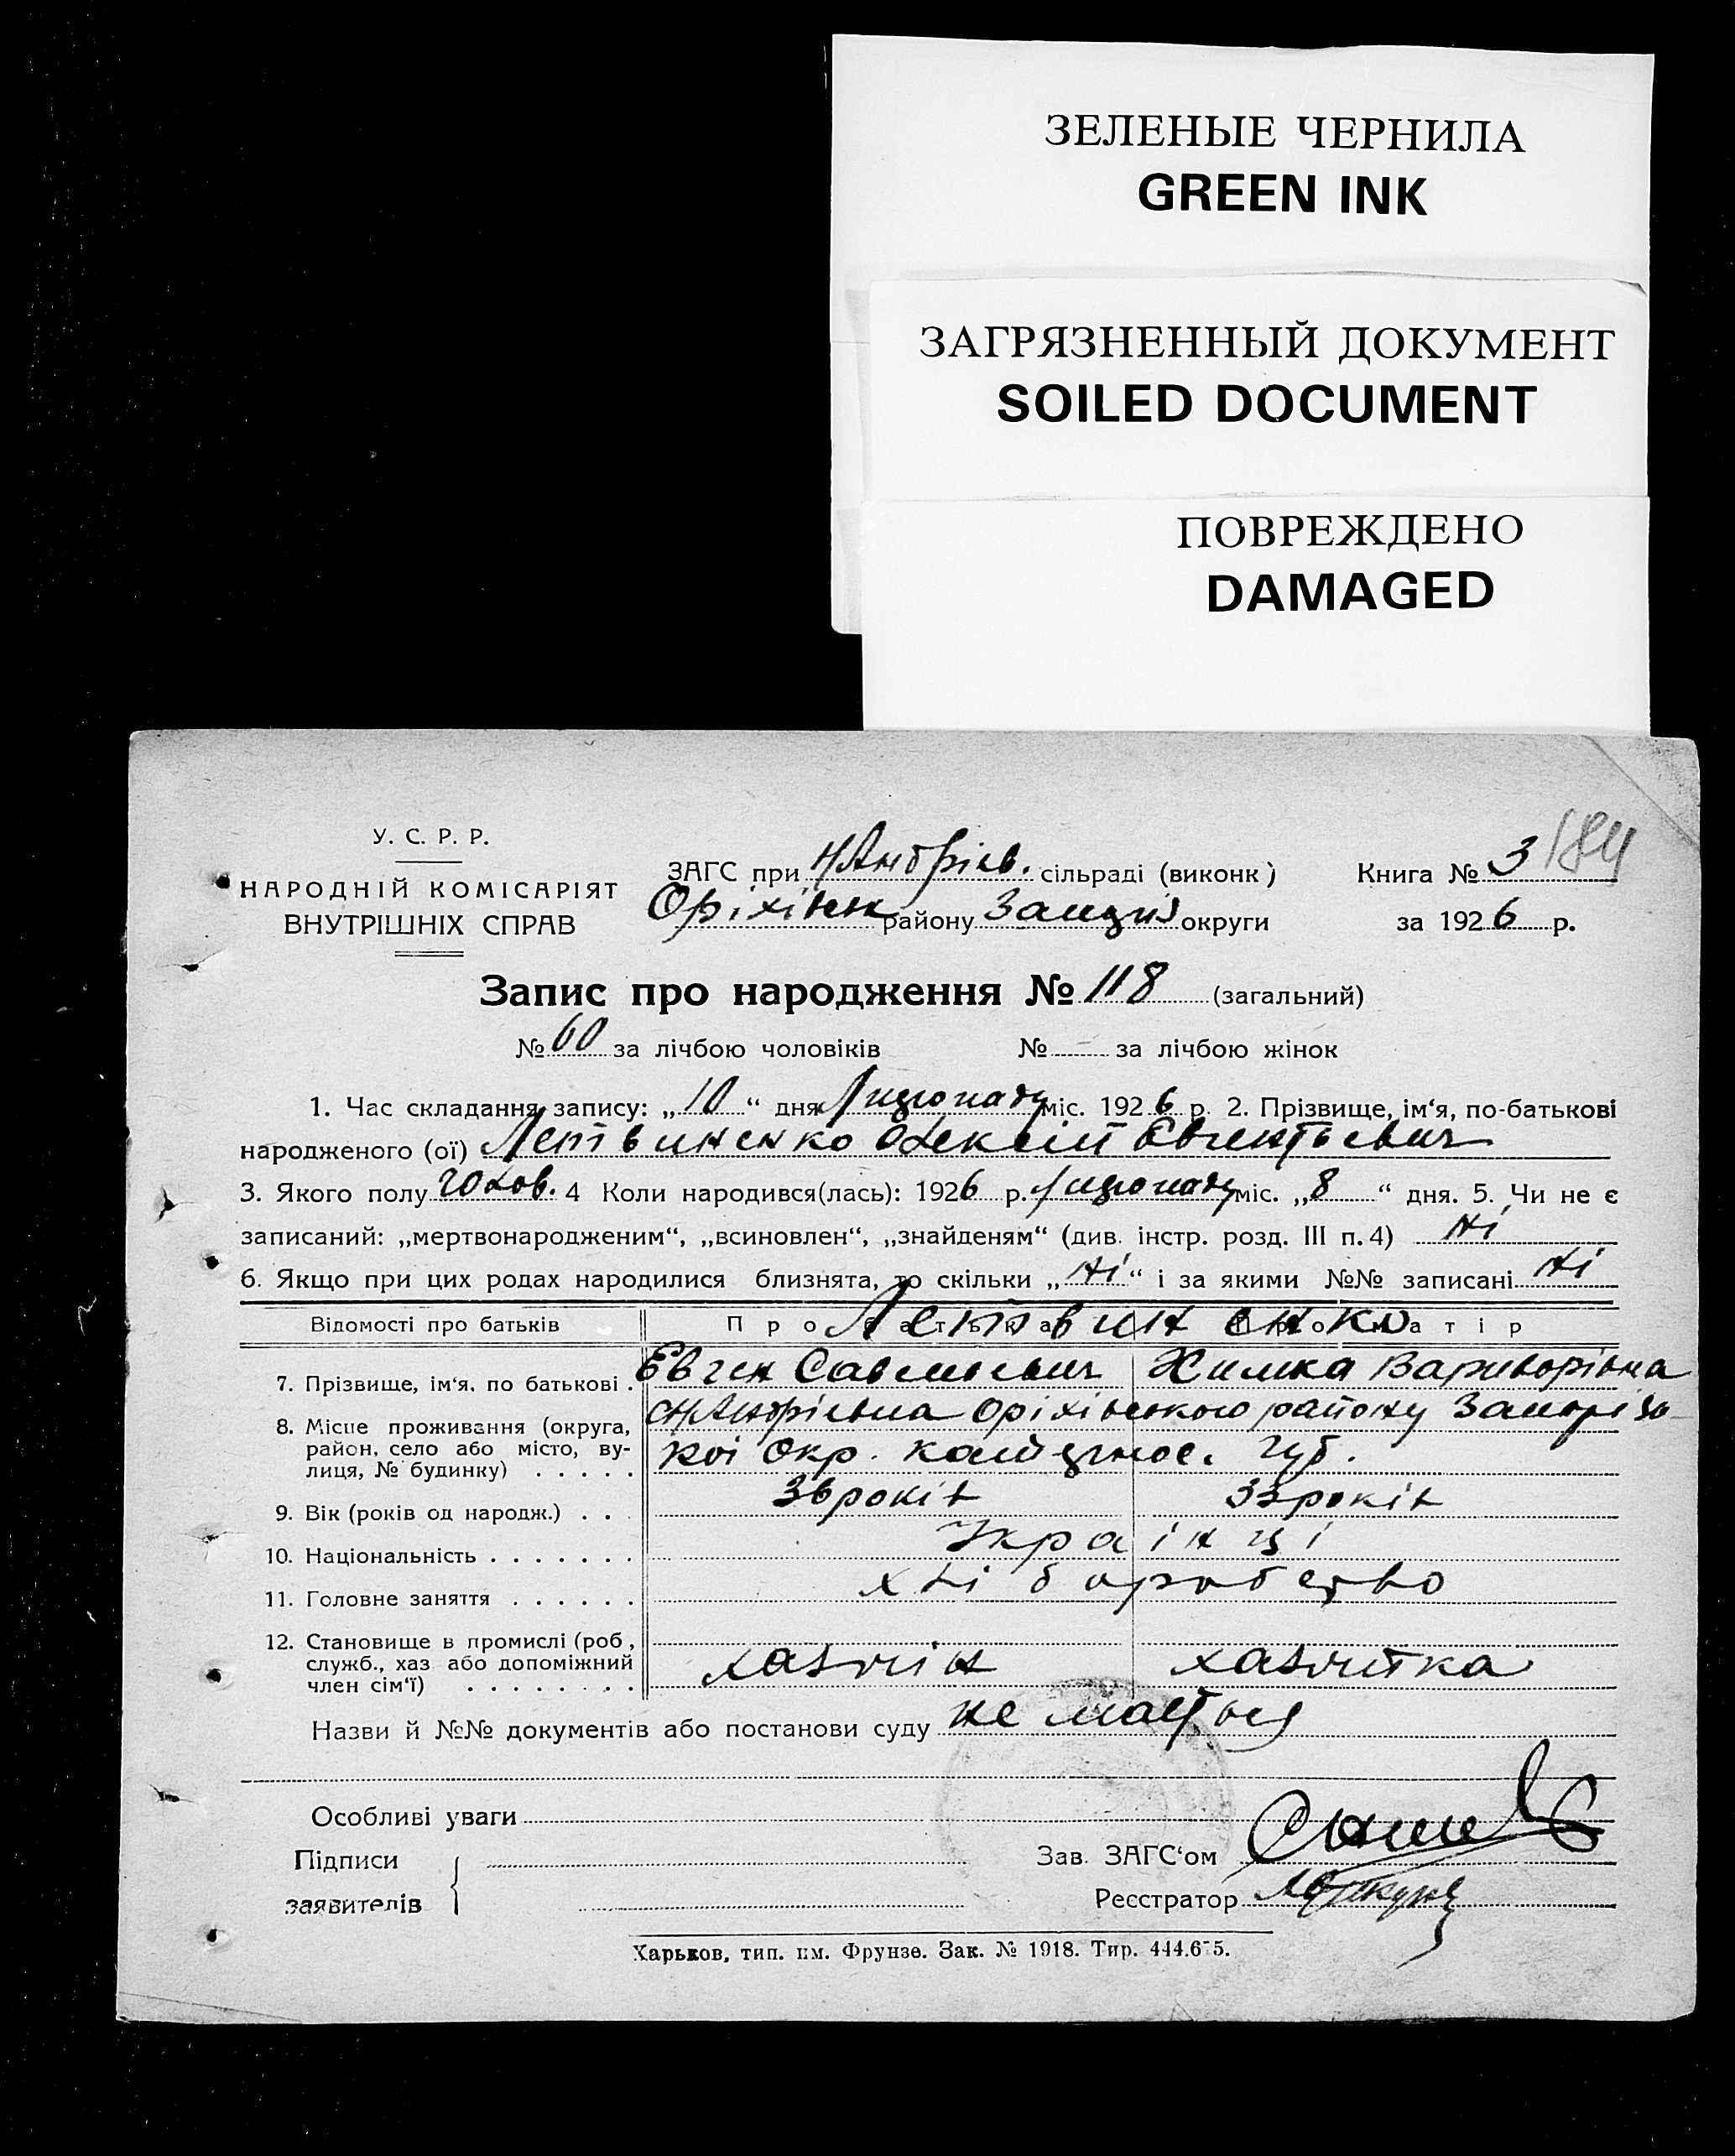 ЗЕЛЕНЫЕ ЧЕРНИЛА
GREEN INK
ЗАГРЯЗНЕННЫЙ ДОКУМЕНТ
SOILED DOCUMENT
ПОВРЕЖДЕНО
DAMAGED
У. С. Р. Р.
НАРОДНІЙ КОМІСАРІЯТ
ВНУТРІШНІХ СПРАВ
ЗАГС при Н/Андріев. сільраді (виконк)
Оріхівськ району округи
Книга № 3 184
за 1926 р.
Запис про народження № 118 (загальний)
№ 60 за лічбою чоловіків № за лічбою жінок
1. Час складання запису: „10“ дня Листопаду міс. 1926 р. 2. Прізвище, ім‘я, по-батькові
народженого (ої) Летвиненко Олексій Євгентьевич
3. Якого полу чолов. 4 Коли народився(лась): 1926 р. Листопаду міс. „8“ дня. 5. Чи не є
записаний: „мертвонародженим“, „всиновлен“, „знайденям“ (див. інстр. розд. III п. 4) ні
6. Якщо при цих родах народилися близнята, то скільки „ні“ і за якими №№ записані ні
Відомості про батьків Про батька Про матір
Летвиненко
7. Прізвище, ім‘я, по батькові . Євген Савельевич Химка
8. Місце проживання (округа, район, село або місто, вулиця, № будинку) . . . . . С/Н Андрієвна Оріхівського району Запорізь-
кої Окр. Губ.
9. Вік (років од народж.) . . . 36 років 33 років
10. Національність . . . . . . . Українці
11. Головне заняття . . . . . . хліборобство
12. Становище в промислі (роб, служб., хаз або допоміжний член сім‘ї) . . . . . . . . хазяїн хазяйка
Назви й №№ документів або постанови суду не мається
Особливі уваги
Підписи
заявителів
Зав. ЗАГС‘ом
Реєстратор
Харьков, тип. им. Фрунзе. Зак. № 1918. Тир. 444.675.